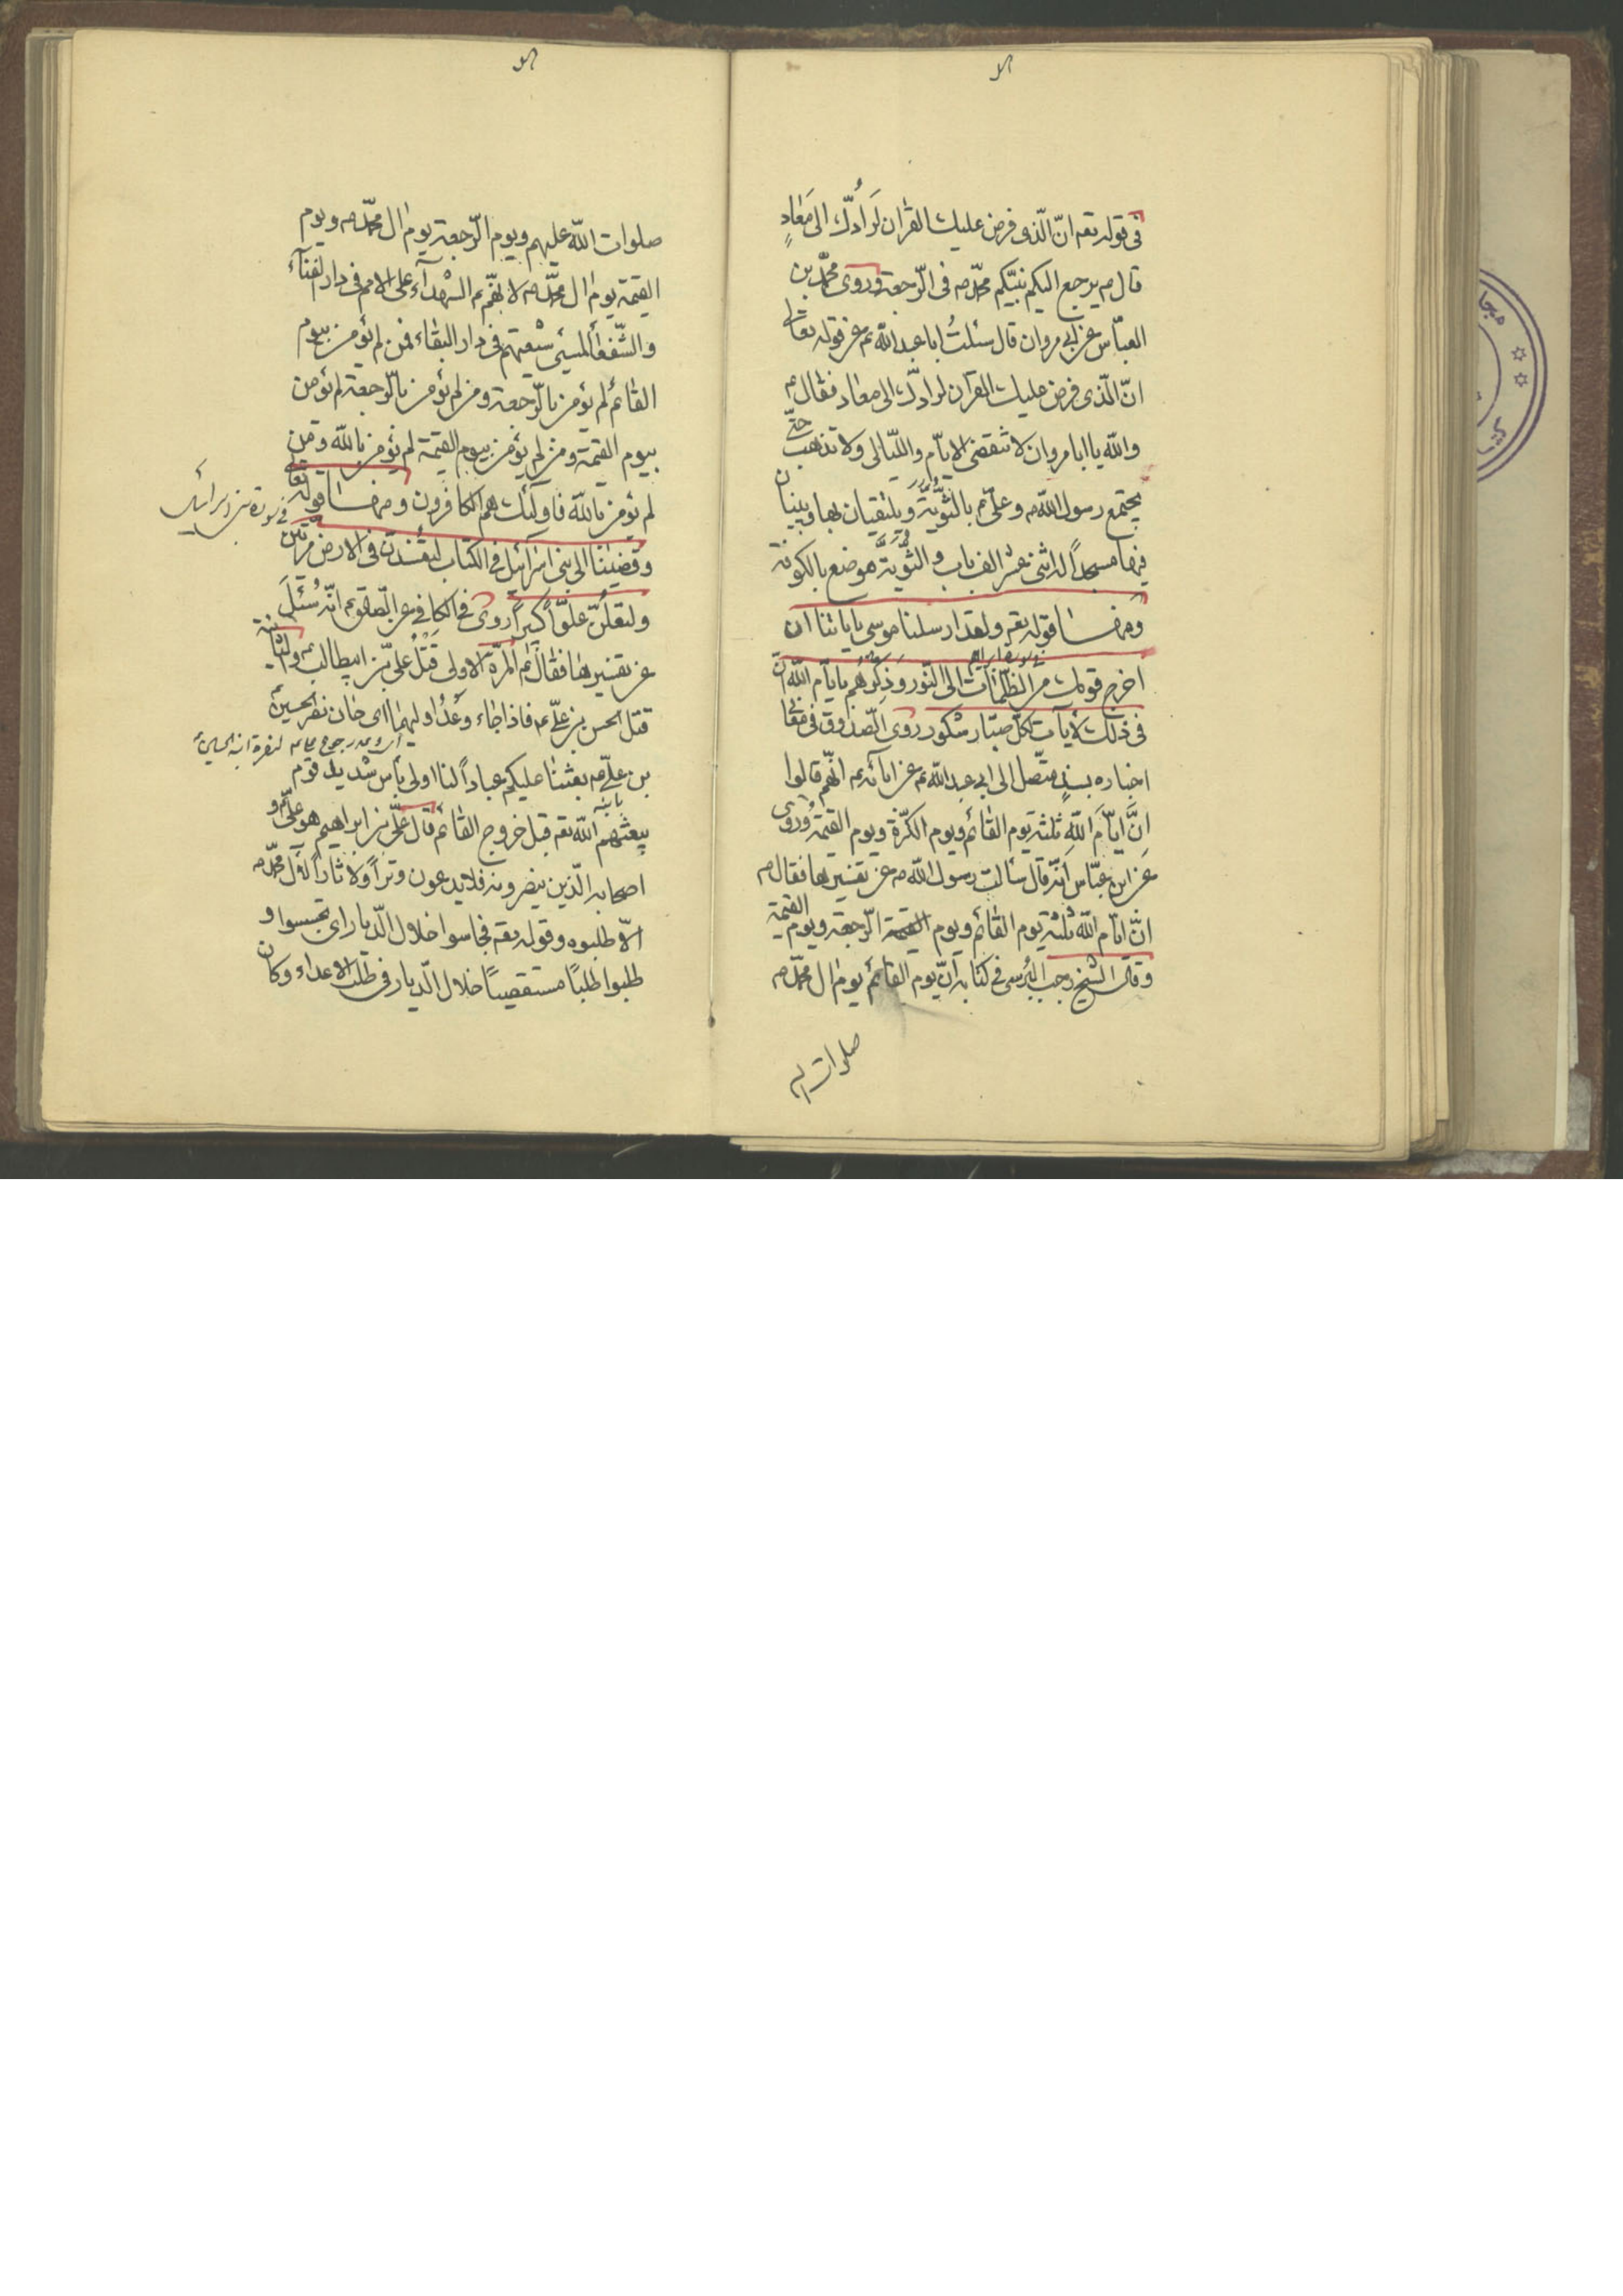 في قوله تعه انّ الّذى فرض عليك القرٰان لَرَادُّكَ الى مَعَادٍ
قال م يرجع اليكم نبيّكم محمّد ص فى الرّجعة وروى محمّد بن
العبّاس عن ابى مروان قال سئلتُ ابا عبد الله ع عن قوله تعالى
انّ الّذى فرض عليك القرآن لرادّك الى معاد فقال م
والله يا ابا مروان لا تنقضى الايّام واللّيالى ولا تذهب حتّى
يجتمع رسول الله ص وعلىّ ع بالثّويّة ويلتقيان بها ويبنيان
فيها مسجداً له اثنى عشر الف باب والثّويّة موضع بالكوفة
ومنها قوله تعه ولقد ارسلنا موسى باياتنا ان
سورة ابراهيم
اخرج قومك من الظّلمات الى النّور وَذكّرهُم بايّام الله انّ
فى ذلك لأيآت لكلّ صبّار شكور روى الصّدوق فى معانى
اخباره بسندٍ متّصل الى ابى عبد الله ع عن ابائه ع انّهم قالوا
انَّ ايّامَ اللهِ ثلثة يوم القائم ويوم الكرّة ويوم القيمة وروى
عن ابن عبّاس انّه قال سألت رسول الله ص عن تفسيرها فقال م
انّ ايّام الله ثلثة يوم القائم ويوم القيمة الرّجعة ويوم القيمة
وقال الشّيخ رجب البُرسى فى كتابه انّ يوم القائم يوم ال محمّد ص
صلوات الله
صلوات الله عليهم ويوم الرّجعة يوم ال محمّد ص ويوم
القيمة يوم ال محمّد ص لانّهم ع الشّهدآء على الامم فى دار الفنآء
والشّفعآ لمسيئ شيعتهم فى دار البقاء فمن لم يؤمن بيوم
القائم لم يؤمن بالرّجعة ومن لم يؤمن بالرّجعة لم يؤمن
بيوم القيمة ومن لم يؤمن بيوم القيمة لم يؤمن بالله ومن
لم يؤمن بالله فاولئك هم الكافرون ومنها قوله تعالى
فى سورة بنى اسرائيل
وقضينا الى بنى اسرائيل فى الكتاب لتفسدنّ فى الارض مرّتين
ولتعلُنّ علوّاً كبيراً روى فى الكافى عن الصّادق ع انّه سُئلَ
عن تفسيرها فقال ع المرّة الاولى قَتْلُ علىّ بن ابيطالب ع والثّانية
قتل الحسن بن علىّ ع فاذا جاء وعْدُ اولٰيهما اى حان نصر الحسين
بن علىّ ع بعثنا عليكم عباداً لنا اولى بأس شديد قوم
يبعثهم الله تعه قبل خروج القائم قال علىّ بن ابراهيم هو علىّ ع و
اصحابه الّذين ينصرونه فلا يدعون وتراً ولا ثاراً لال محمّد ص
الاّ طلبوه وقوله تعه فجاسوا خلال الدّيار اى تجسسوا و
طلبوا طلباً مستقصياً خلال الدّيار فى طلب الاعداء وكان